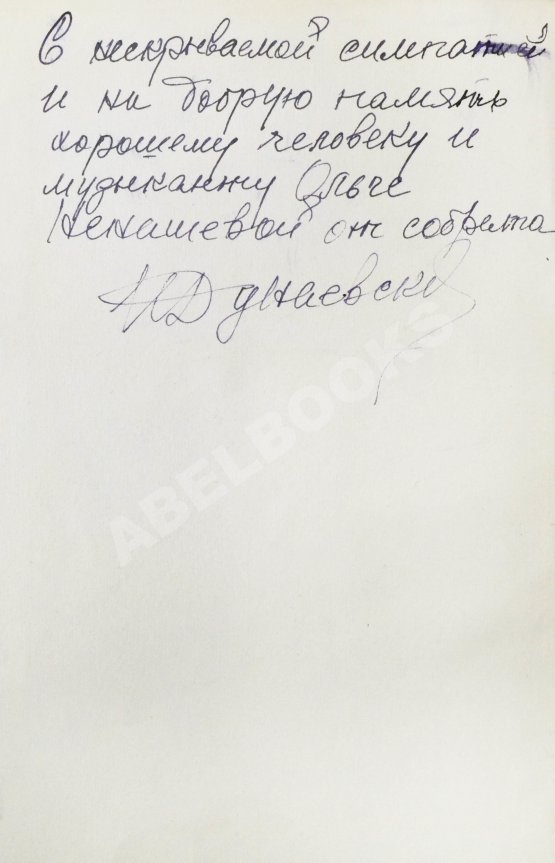 С нескрываемой симпатией
и на добрую память
хорошему человеку и
музыканту Ольге
Ненашевой от собрата
И Дунаевский
ABELBOOKS